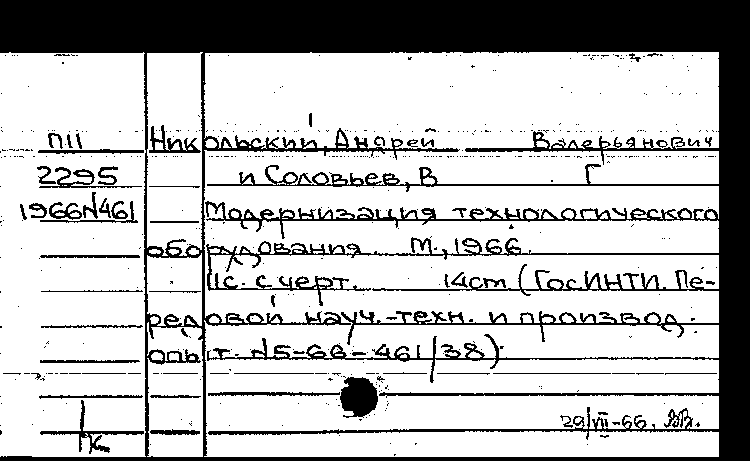 П11 Никольский, Андрей Валерьянович
2295 и Соловьев, В Г
1966№461 Модернизация технологического
оборудования. М., 1966.
11с. с черт. 14cm (ГосИНТИ. Пе-
редовой науч.-техн. и производ.
опыт. №5-66-461/38)
29/VII-66.